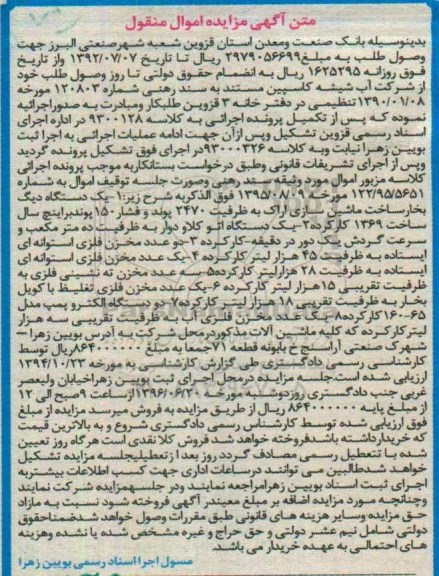 متن آگهی مزایده اموال منقول
بدینوسیله بانک صنعت ومعدن استان قزوین شعبه شهرصنعتی البرز جهت
وصول طلب به مبلغ ۲۹۷۹۰۵۶۶۹۹ ریال تا تاریخ ۱۳۹۲/۰۷/۰۷ واز تاریخ
فوق روزانه ۱۶۲۵۲۹۵ ریال به انضمام حقوق دولتی تا روز وصول طلب خود
از شرکت آب شیشه کاسپین مستند به سند رهنی شماره ۱۲۰۸۰۳ مورخه
۱۳۹۰/۰۱/۰۸تنظیمی در دفتر خانه ۳ قزوین طلبکار ومبادرت به صدوراجرائیه
نموده که پس از تکمیل پرونده اجرائی به کلاسه ۹۳۰۰۱۲۸ در اداره اجرای
اسناد رسمی قزوین تشکیل وپس ازآن جهت ادامه عملیات اجرائی به اجرا ثبت
بویین زهرا نیابت وبه کلاسه ۹۳۰۰۰۳۲۶در اجرای فوق تشکیل پرونده گردید
وپس از اجرای تشریفات قانونی وطبق درخواست بستانکاربه موجب پرونده اجرائی
کلاسه مزبور اموال مورد وثیقه سند رهنی وصورت جلسه توقیف اموال به شماره
۱۲۲/۹۵/۵۶۵۱ مورخه ۱۳۹۵/۰۸/۰۹ فوق الذکربه شرح زیر:۱-یک دستگاه دیگ
بخارساخت ماشین سازی اراک به ظرفیت ۲۴۷۰ پوند و فشار ۱۵۰ پوندبراینچ سال
ساخت ۱۳۶۹ کارکرده۲-یک دستگاه اتو کلاو دوار به ظرفیت ده متر مکعب و
سرعت گردش یک دور در دقیقه-کارکرده ۳-دو عدد مخزن فلزی استوانه ای
ایستاده به ظرفیت ۴۵ هزار لیتر کارکرده ۴-یک عدد مخزن فلزی استوانه ای
ایستاده به ظرفیت ۲۸ هزارلیتر کارکرده۵-سه عدد مخزن ته نشینی فلزی به
ظرفیت تقریبی ۱۵هزار لیتر کارکرده ۶-یک عدد مخزن فلزی تغلیظ با کویل
بخار به ظرفیت تقریبی ۱۸ هزارلیتر کارکرده۷-دو دستگاه الکترو پمپ مدل
۶۵-۱۶۰کارکرده۸-یک عدد مخزن فلزی به ظرفیت تقریبی سه هزار
لیترکارکرده که کلیه ماشین آلات مذکوردرمحل شرکت به آدرس بویین زهرا –
شهرک صنعتی آراسنج خ بابونه قطعه ۷۱جمعا به مبلغ ۸۶۴۰۰۰۰۰۰۰ریال توسط
کارشناسی رسمی دادگستری طی گزارش کارشناسی به مورخه ۱۳۹۴/۱۰/۲۳
ارزیابی شده است.جلسه مزایده درمحل اجرای ثبت بویین زهراخیابان ولیعصر
غربی جنب دادگستری روزدوشنبه مورخه ۱۳۹۶/۰۶/۲۰ازساعت ۹صبح الی ۱۲
از مبلغ پایه ۸۶۴۰۰۰۰۰۰۰ ریال از طریق مزایده به فروش میرسد مزایده از مبلغ
فوق ارزیابی شده توسط کارشناس رسمی دادگستری شروع و به بالاترین قیمت
که خریدارداشته باشدفروخته خواهد شد فروش کلا نقدی است هر گاه روز تعیین
شده با تتعطیل رسمی مصادف گردد روز بعد ازتعطیلیجلسه مزایده تشکیل
خواهد شدطالبین می توانند درساعات اداری جهت کسب اطلاعات بیشتربه
اجرای ثبت اسناد بویین زهرامراجعه نمایند ودر جلسهمزایده شرکت نمایند
وچنانجه مورد مزایده اضافه بر مبلغ معیندر آگهی فروخته شود نسبت به مازاد
حق مزایده وسایر هزینه های قانونی طبق مقررات وصول خواهد شدضمناحقوق
دولتی شامل نیم عشر دولتی و حق حراج و غیره مشخص شده یا نشده وهزینه
های احتمالی به عهده خریدار می باشد.
مسول اجرا اسناد رسمی بویین زهرا